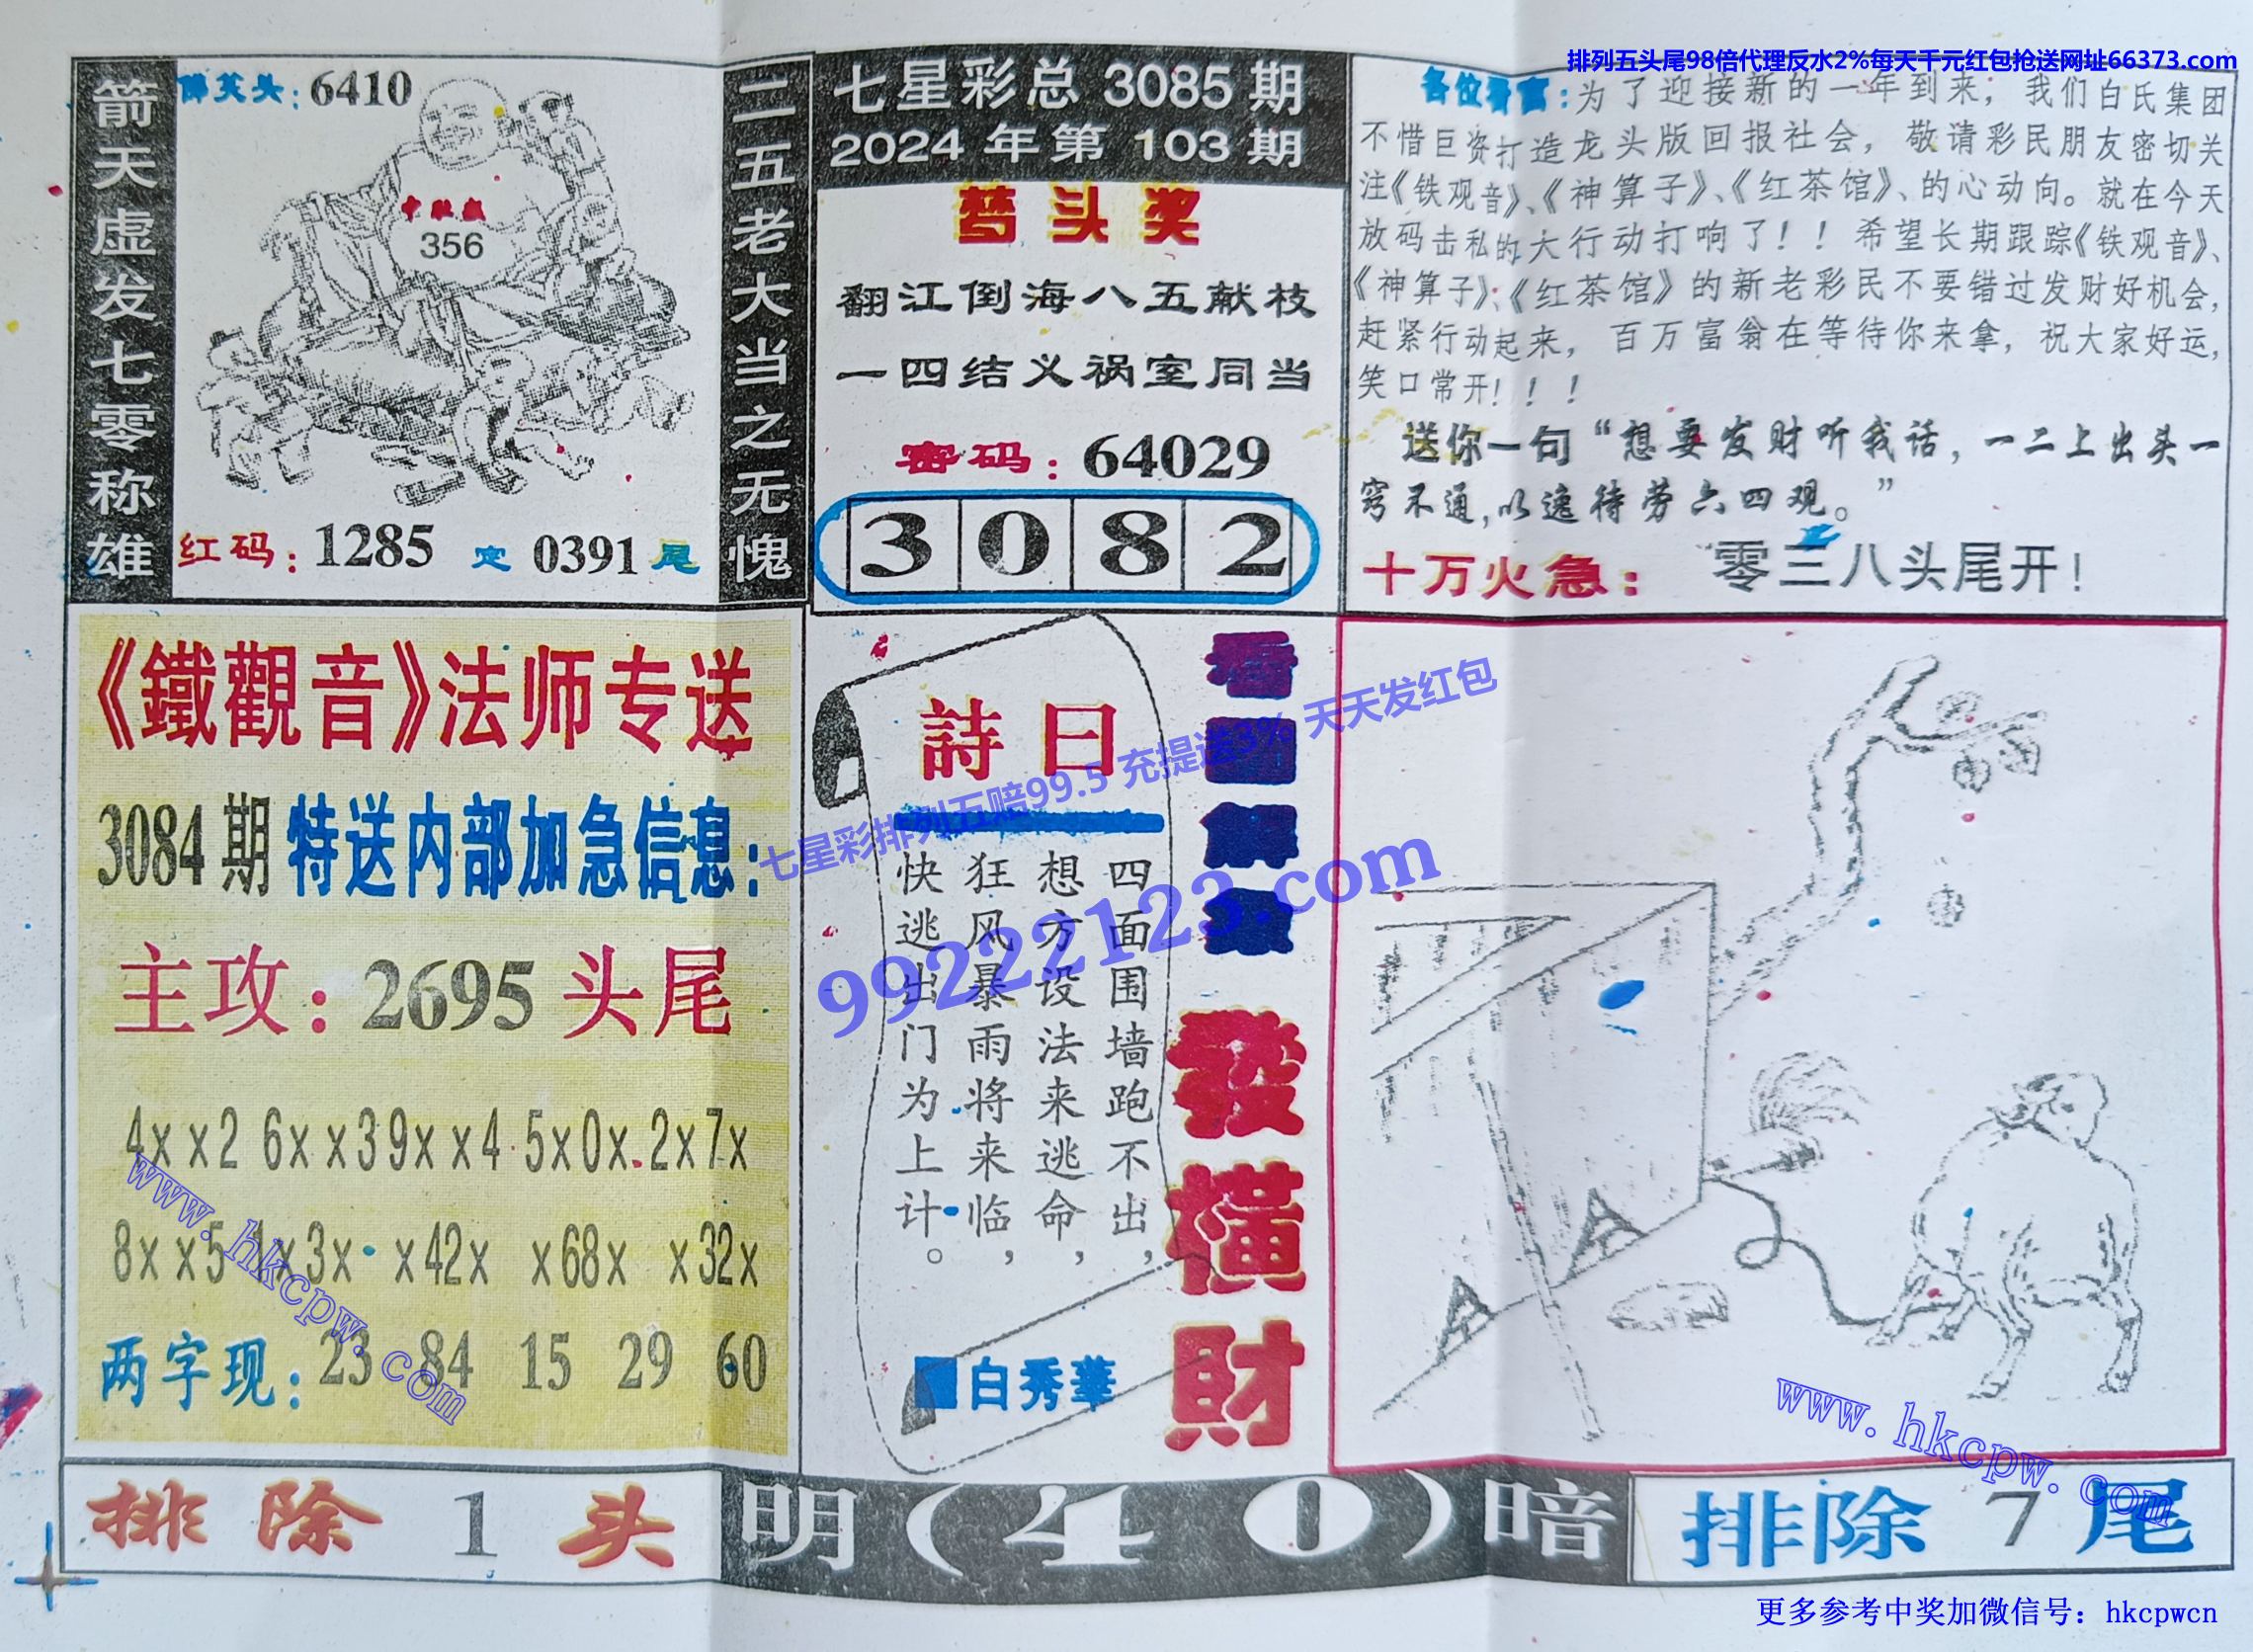 排列五头尾98倍代理反水2%每天千元红包抢送网址66373.com
箭天虚发七零称雄
6410
356
红码：1285 定 0391 尾
二五老大当之无愧
七星彩总 3085 期
2024 年第 103 期
梦头奖
翻江倒海八五献枝
一四结义祸室同当
密码：64029
3 0 8 2
各位看官：为了迎接新的一年到来；我们白氏集团
不惜巨资打造龙头版回报社会，敬请彩民朋友密切关
注《铁观音》、《神算子》、《红茶馆》、的心动向。就在今天
放码击私的大行动打响了！！希望长期跟踪《铁观音》、
《神算子》；《红茶馆》的新老彩民不要错过发财好机会，
赶紧行动起来，百万富翁在等待你来拿，祝大家好运，
笑口常开！！！
送你一句“想要发财听我话，一二上出头一
窍不通，以逸待劳六四观。”
十万火急： 零三八头尾开！
《鐵觀音》法师专送
3084 期 特送内部加急信息：
主攻：2695 头尾
4××2 6××3 9××4 5×0× 2×7×
8××5 1×3× ×42× ×68× ×32×
两字现：23 84 15 29 60
詩曰
四面围墙跑不出，
想方设法来逃命，
狂风暴雨将来临，
快逃出门为上计。
白秀華
發橫財
七星彩排列五赔99.5 充提送3% 天天发红包
99222123.com
www.hkcpw.com
www.hkcpw.com
排除 1 头
明(40)暗
排除 7 尾
更多参考中奖加微信号：hkcpwcn